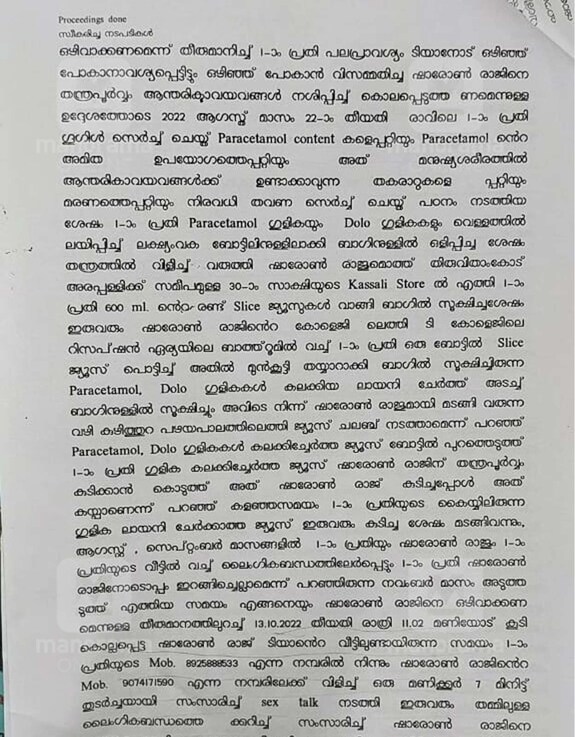 Proceedings done
സ്വീകരിച്ച നടപടികൾ
ഒഴിവാക്കണമെന്ന് തീരുമാനിച്ച് 1-ാം പ്രതി പലപ്രാവശ്യം ടിയാനോട് ഒഴിഞ്ഞ്
പോകാനാവശ്യപ്പെട്ടിട്ടും ഒഴിഞ്ഞ് പോകാൻ വിസമ്മതിച്ച ഷാരോൺ രാജിനെ
തന്ത്രപൂർവ്വം ആന്തരികാവയവങ്ങൾ നശിപ്പിച്ച് കൊലപ്പെടുത്ത ണമെന്നുള്ള
ഉദ്ദേശത്തോടെ 2022 ആഗസ്ത് മാസം 22-ാം തീയതി രാവിലെ 1-ാം പ്രതി
ഗൂഗിൾ സെർച്ച് ചെയ്ത് Paracetamol content കളെപ്പറ്റിയും Paracetamol ന്റെ
അമിത ഉപയോഗത്തെപ്പറ്റിയും അത് മനുഷ്യശരീരത്തിൽ
ആന്തരികാവയവങ്ങൾക്ക് ഉണ്ടാക്കാവുന്ന തകരാറുകളെ പ്പറ്റിയും
മരണത്തെപ്പറ്റിയും നിരവധി തവണ സെർച്ച് ചെയ്ത് പഠനം നടത്തിയ
ശേഷം 1-ാം പ്രതി Paracetamol ഗുളികയും Dolo ഗുളികകളും വെള്ളത്തിൽ
ലയിപ്പിച്ച് ലക്ഷ്യംവക ബോട്ടിലിനുള്ളിലാക്കി ബാഗിനുള്ളിൽ ഒളിപ്പിച്ച ശേഷം
തന്ത്രത്തിൽ വിളിച്ച് വരുത്തി ഷാരോൺ രാജുമൊത്ത് തിരുവിതാംകോട്
അരപ്പള്ളിക്ക് സമീപമുള്ള 30-ാം സാക്ഷിയുടെ Kassali Store ൽ എത്തി 1-ാം
പ്രതി 600 ml. ന്റെ രണ്ട് Slice ജ്യൂസുകൾ വാങ്ങി ബാഗിൽ സൂക്ഷിച്ചശേഷം
ഇരുവരും ഷാരോൺ രാജിന്റെ കോളെജി ലെത്തി ടി കോളെജിലെ
റിസപ്ഷൻ ഏര്യയിലെ ബാത്ത്റൂമിൽ വച്ച് 1-ാം പ്രതി ഒരു ബോട്ടിൽ Slice
ജ്യൂസ് പൊട്ടിച്ച് അതിൽ മുൻകൂട്ടി തയ്യാറാക്കി ബാഗിൽ സൂക്ഷിച്ചിരുന്ന
Paracetamol, Dolo ഗുളികകൾ കലക്കിയ ലായനി ചേർത്ത് അടച്ച്
ബാഗിനുള്ളിൽ സൂക്ഷിച്ചും അവിടെ നിന്ന് ഷാരോൺ രാജുമായി മടങ്ങി വരുന്ന
വഴി കുഴിത്തുറ പഴയപാലത്തിലെത്തി ജ്യൂസ് ചലഞ്ച് നടത്താമെന്ന് പറഞ്ഞ്
Paracetamol, Dolo ഗുളികകൾ കലക്കിച്ചേർത്ത ജ്യൂസ് ബോട്ടിൽ പുറത്തെടുത്ത്
1-ാം പ്രതി ഗുളിക കലക്കിച്ചേർത്ത ജ്യൂസ് ഷാരോൺ രാജിന് തന്ത്രപൂർവ്വം
കുടിക്കാൻ കൊടുത്ത് അത് ഷാരോൺ രാജ് കുടിച്ചപ്പോൾ അത്
കയ്പാണെന്ന് പറഞ്ഞ് കളഞ്ഞസമയം 1-ാം പ്രതിയുടെ കൈയ്യിലിരുന്ന
ഗുളിക ലായനി ചേർക്കാത്ത ജ്യൂസ് ഇരുവരും കുടിച്ച ശേഷം മടങ്ങിവന്നും,
ആഗസ്റ്റ് , സെപ്റ്റംബർ മാസങ്ങളിൽ 1-ാം പ്രതിയും ഷാരോൺ രാജും 1-ാം
പ്രതിയുടെ വീട്ടിൽ വച്ച് ലൈംഗികബന്ധത്തിലേർപ്പെട്ടും 1-ാം പ്രതി ഷാരോൺ
രാജിനോടൊപ്പം ഇറങ്ങിച്ചെല്ലാമെന്ന് പറഞ്ഞിരുന്ന നവംബർ മാസം അടുത്ത
ടുത്ത് എത്തിയ സമയം എങ്ങനെയും ഷാരോൺ രാജിനെ ഒഴിവാക്കണ
മെന്നുള്ള തീരുമാനത്തിലുറച്ച് 13.10.2022 തീയതി രാത്രി 11.02 മണിയോട് കൂടി
കൊല്ലപ്പെട്ട ഷാരോൺ രാജ് ടിയാന്റെ വീട്ടിലുണ്ടായിരുന്ന സമയം 1-ാം
പ്രതിയുടെ Mob. 8925888533 എന്ന നമ്പരിൽ നിന്നും ഷാരോൺ രാജിന്റെ
Mob. 9074171590 എന്ന നമ്പരിലേക്ക് വിളിച്ച് ഒരു മണിക്കൂർ 7 മിനിട്ട്
തുടർച്ചയായി സംസാരിച്ച് sex talk നടത്തി ഇരുവരും തമ്മിലുള്ള
ലൈംഗികബന്ധത്തെ ക്കുറിച്ച് സംസാരിച്ച് ഷാരോൺ രാജിനെ